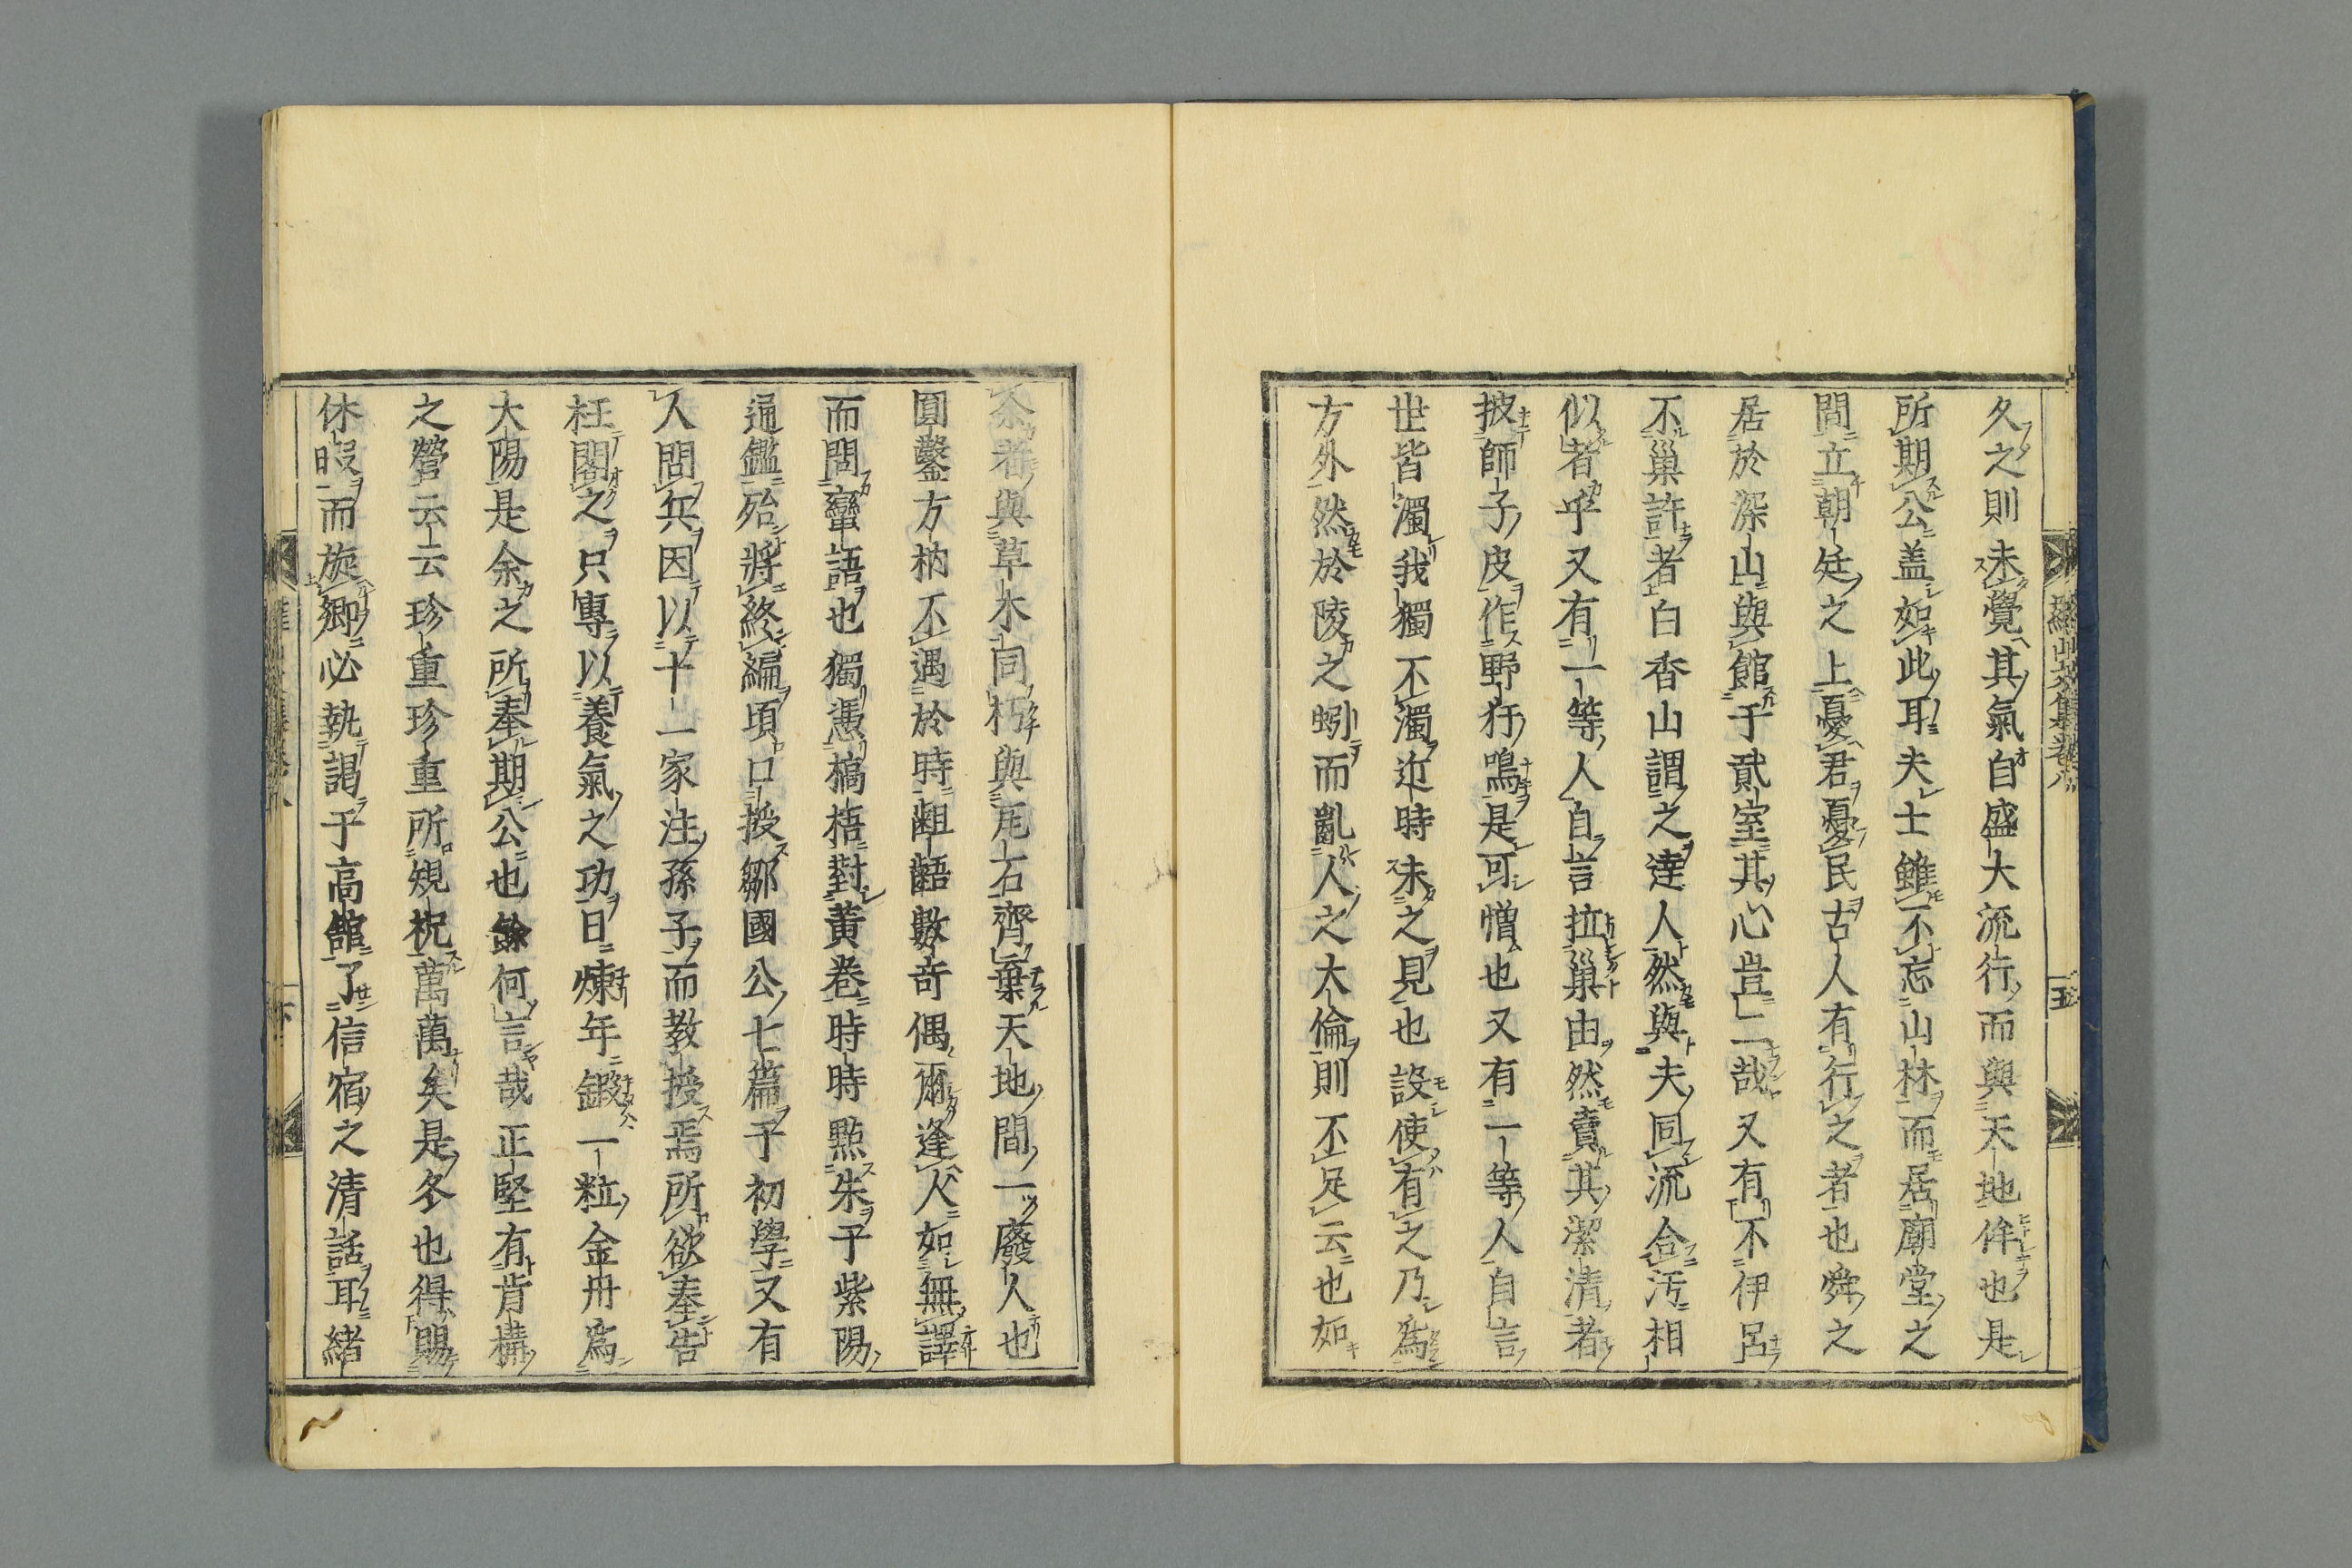 久之則未覺其氣自盛大流行而與天地侔也是
所期公盖如此耳夫士雖不忘山林而居廟堂之
間立朝廷之上憂君憂民古人有行之者也舜之
居於深山與館于貳室其心豈二哉又有不伊呂
不巢許者白香山謂之達人然與夫同流合汚相
似者乎又有一等人自言拉巢由然賣其潔清者
披師子皮作野犴鳴是可憎也又有一等人自言
世皆濁我獨不濁近時未之見也設使有之乃爲
方外然於陵之蚓而亂人之大倫則不足云也如
余者與草木同朽與瓦石齊棄天地間一廢人也
圓鑿方枘不遇於時齟齬數奇偶爾逢人如無譯
而問蠻語也獨憑槁梧對黄卷時時點朱于紫陽
通鑑殆將終編頃口授鄒國公七篇于初學又有
人問兵因以十一家注孫子而教授焉所欲奉告
枉閣之只專以養氣之功日煉年鍛一粒金丹爲
大陽是余之所奉期公也餘何言哉正堅有肯構
之營云云珍重珍重所規祝萬萬矣是冬也得賜
休暇而旋卿必執謁于高館了信宿之清話耳緒